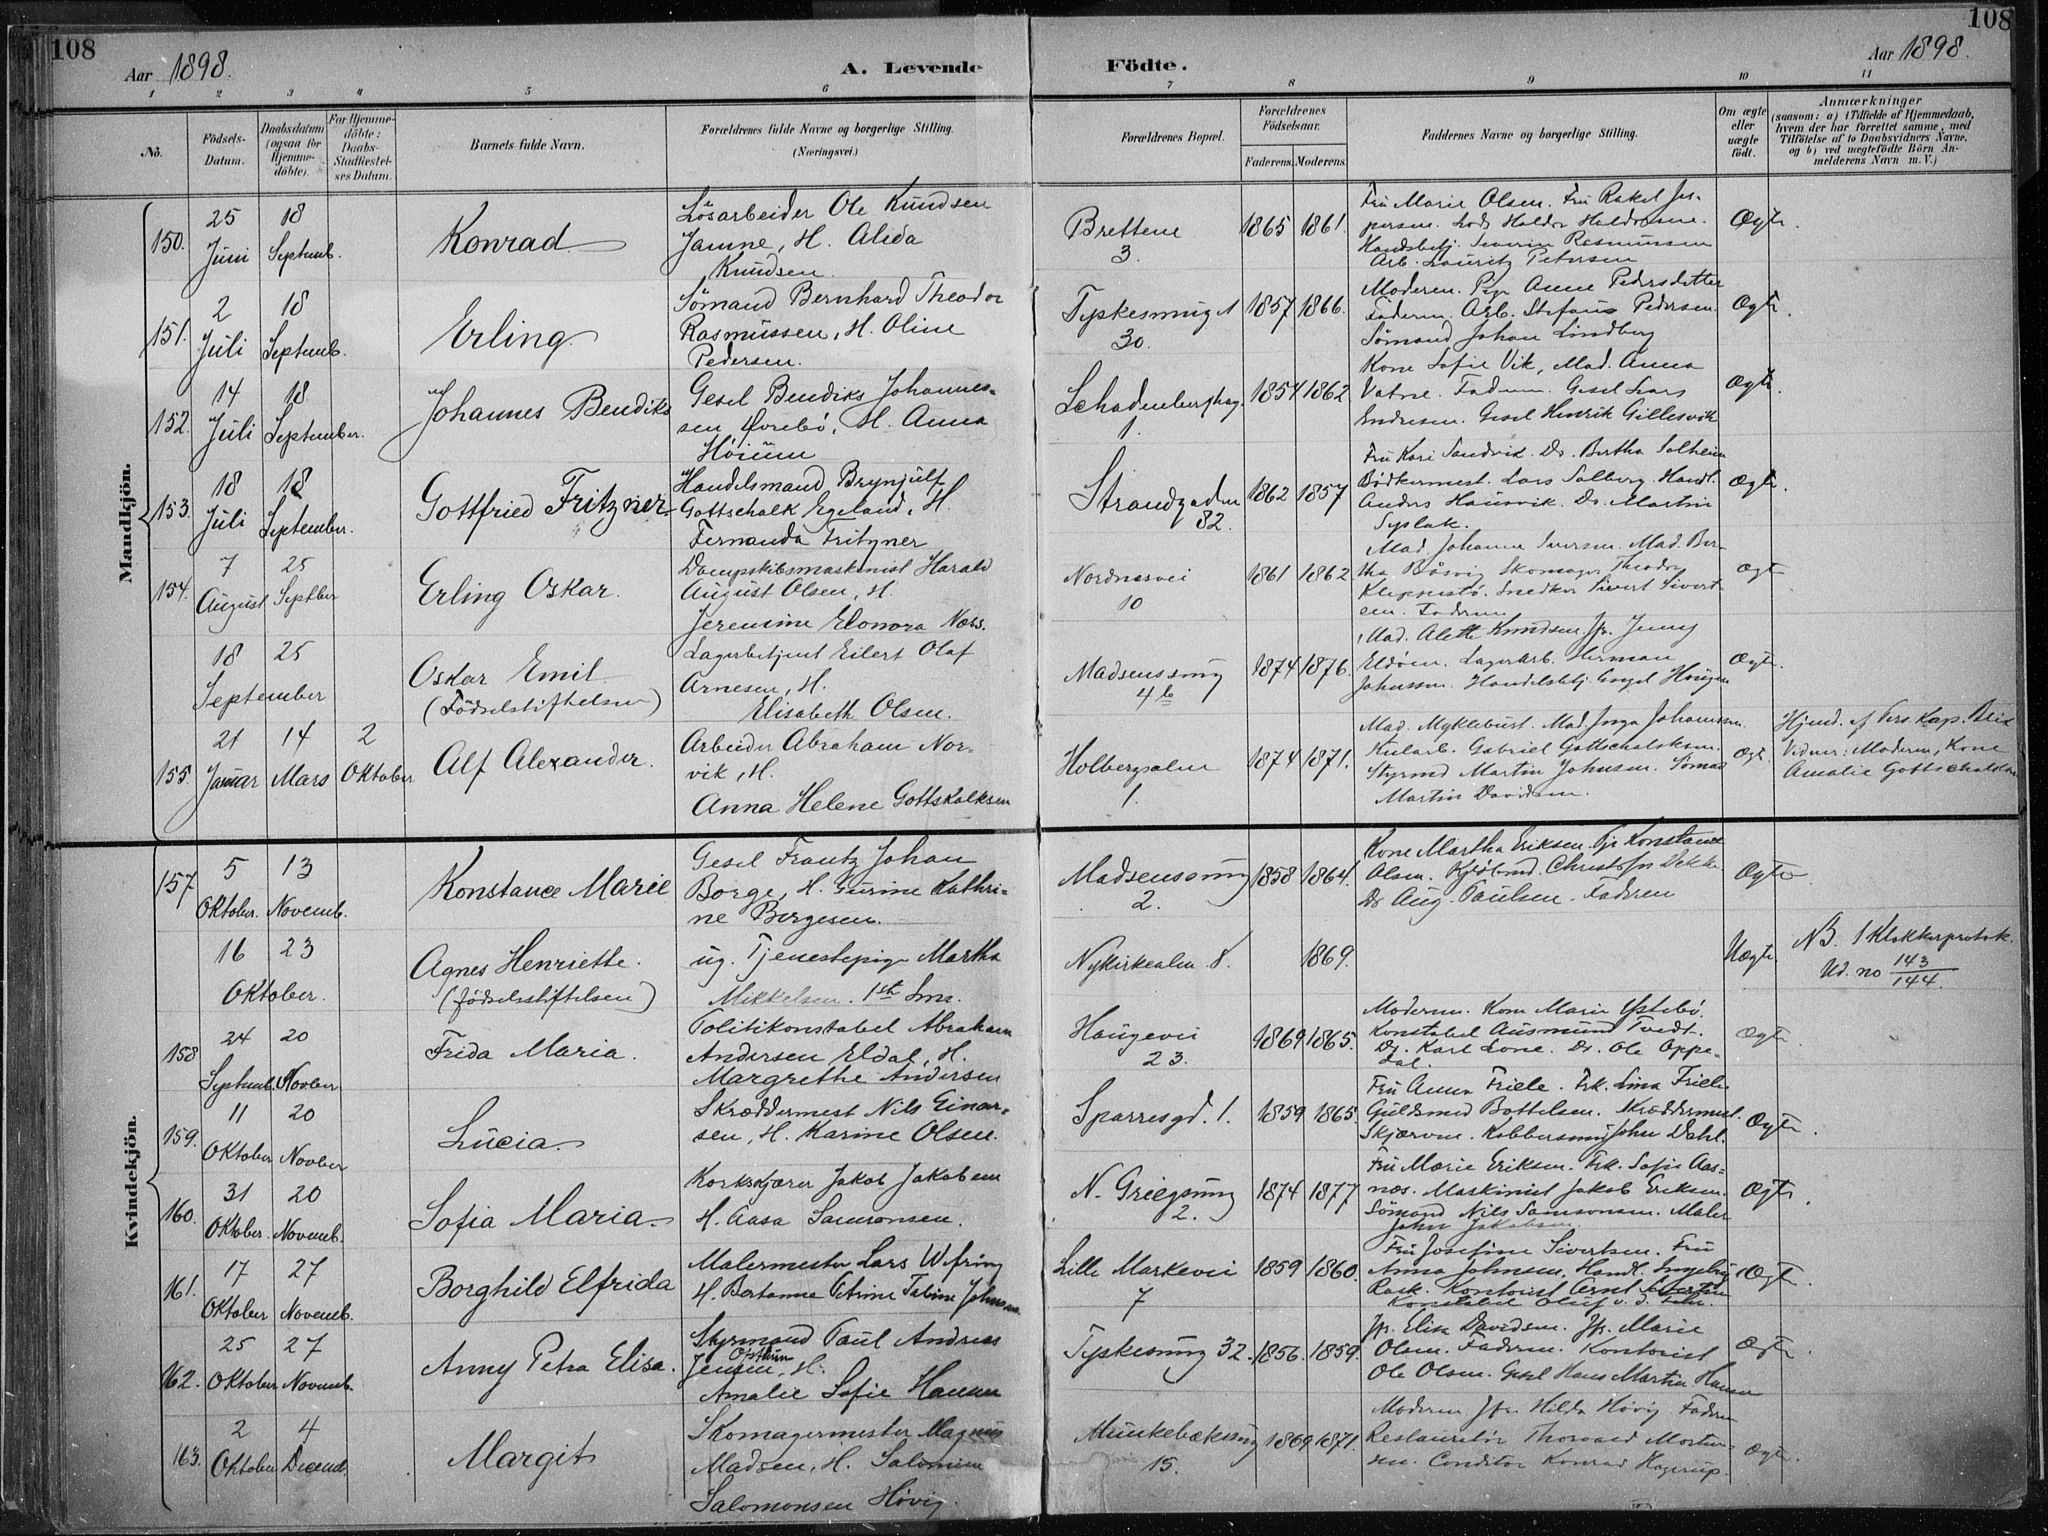 108
Aar 1898.
A. Levende Födte.
Aar 1898.
108
1 2 3 4 5 6 7 8 9 10 11
No.
Födsels-Datum.
Daabsdatum (ogsaa for Hjemme-döbte).
For Hjemme-döbte: Daabs-Stadfæstel-ses Datum.
Barnets fulde Navn.
Forældrenes fulde Navne og borgerlige Stilling.
(Næringsvei.)
Forældrenes Bopæl.
Forældrenes Födselsaar.
Faderens. Moderens.
Faddernes Navne og borgerlige Stilling.
Om ægte eller uægte födt.
Anmærkninger
(saasom: a) i Tilfælde af Hjemmedaab,
hvem der har forrettet samme, med
Tilföielse af to Daabsvidners Navne,
og b) ved uægtefödte Börn An-
melderens Navn m. V.)
Mandkjön.
150. 25 Juni 18 Septemb. Konrad
Lösarbeider Ole Knudsen
Janne, H. Alida
Knudsen.
Brettene 3. 1865 1861.
Fru Marie Olsen. Fru Rakel Jes-
persen. Lods Haldor Haldorsen.
Handsbetj. Severin Rasmussen
Arb. Lauritz Petersen
Ægte.
151. 2 Juli 18 Septemb. Erling
Sömand Bernhard Theodor
Rasmussen, H. Oline
Pedersen.
Tyskesmug 30. 1857 1866.
Moderen. Pige Anne Pedersdatter
Faderen. Arb. Stefanus Pedersen.
Sömand Johan Lindberg
Ægte.
152. 14 Juli 18 September. Johannes Bendiks
Gesel Bendiks Johannes-
sen Øvrebö, H. Anna
Höium
1. 1854 1862
Kone Sofie Vik, Mad. Anna
Vatne. Faderen. Gesel Lars
Endresen. Gesel Henrik Gillesvik
Ægte.
153. 18 Juli 18 September. Gottfried Fritzner
Handelsmand Brynjulf
Gottschalk Egeland, H.
Fernanda Fritzner
Strandgaden 82. 1862 1857
Fru Kari Sandvik. Do. Bertha Solheim
Bödkermest. Lars Solberg. Handl.
Anders Hausvik. Do. Martin
Ægte.
154. 7 August 25 Septber Erling Oskar.
Dampskibsmaskinist Harald
August Olsen, H.
Jerensine Elonora Næss.
Nordnesvei 10 1861 1862
Mad. Johanne Iversen. Mad. Ber-
tha Skomager Theodor
Snedker Sivert Sivert-
sen. Faderen
Ægt
18 25 September Oskar Emil.
(Födselstiftelsen)
Lagerbetjent Eilert Olaf
Arnesen, H.
Elisabeth Olsen.
Madsenssmug 4b 1874 1876.
Mad. Alette Knudsen. Jfr. Jenny
Eldöen. Lagerarb. Herman
Johnsen. Handelsbetj. Engel Haugen
Ægte.
155. 21 Januar 14 Mars 2 Oktober Alf Alexander.
Arbeider Abraham Nor-
vik, H.
Anna Helene Gottskalksen
Holbergsalm 1. 1874 1871.
Mad. Myklebust. Mad. Inga Johansen.
Gabriel Gottschalksen.
Styrmd Martin Johnsen. Sömand
Martin Davidsen.
Ægt.
Hjemd. af Pers. Kap. Blix
Vidner: Moderen, Kone
Amalie Gottschalksen
Kvindekjön.
157 5 Oktober. 13 Novemb. Konstance Marie
Gesel Frantz Johan
Borge, H. Gurine Kathri-
ne Børgesen.
Madsenssmug 2. 1858 1864.
Kone Martha Eriksen. Konstance
Olsen. Kjöbmd. Christoffer
Do Aug. Paulsen. Faderen
Ægte
16 23 Oktober. Agnes Henriette.
(Födselsstiftelsen)
ug. Tjenestepige Martha
Mikkelsen. 1ste
Nykirkealm 8. 1869.
Uægte.
NB. Klokkerprotok.
Ud. no 143/144.
158 24 Septemb. 20 Novber Frida Maria.
Politikonstabel Abraham
Andersen Eldal, H.
Margrethe Andersen
Haugevei 23. 1869 1865.
Moderen. Kone Marie Ystebö.
Konstabel Ausmund Tvedt.
Do. Karl Lone. Do. Ole Oppe-
dal.
Ægte.
159. 11 Oktober 20 Novber Lucia.
Skræddermest Nils Einar-
sen, H. Karine Olsen.
Sparresgd. 1. 1859 1865.
Fru Anna Friele. Frk. Lina Friele
Guldsmed Bottelsen. Skræddermest.
Skjærven. Kobbersmed John Dahl.
Ægte.
160. 31 Oktober. 20 Novemb. Sofia Maria.
Korkskjærer Jakob Jakobsen
H. Aasa Samsonsen.
N. Griegsmug 2. 1874 1877
Fru Marie Eriksen. Frk. Sofie Aas-
næs. Maskinist Jakob Eriksen.
Sömand Nils Samsonsen. Maler
John Jakobsen.
Ægte.
161. 17 Oktober 27 Novemb. Borghild Elfrida
Malermester Lars Wefring
H. Bertanne Petrine Fabine Johnsen
Lille Markevei 7 1859 1860.
Fru Josefine Sivertsen. Fru
Anna Johnsen. Handl. Ingebrigt
Rask. Kontorist Arnt
Konstabel Oluf v. d.
Ægt.
162. 25 Oktober 27 Novemb. Anny Petra Elisa.
Styrmand Paul Andreas
Jensen, H.
Amalie Sofie Hansen
Tyskesmug 32. 1856. 1859.
Jfr. Elisa Davidsen. Jfr. Marie
Olsen. Faderen. Kontorist
Ole Olsen. Gesel Hans Martin Hansen
Ægte.
163. 2 Oktober 4 Decemb. Margit
Skomagermester Magnus
Madsen, H. Salomine
Salomonsen Hövig.
Munkebæksmug 15. 1869 1871.
Moderen Jfr. Hilda Hövig Faderen
Restauratör Thorvald Morten-
sen. Conditor Konrad Hagerup.
Ægte.